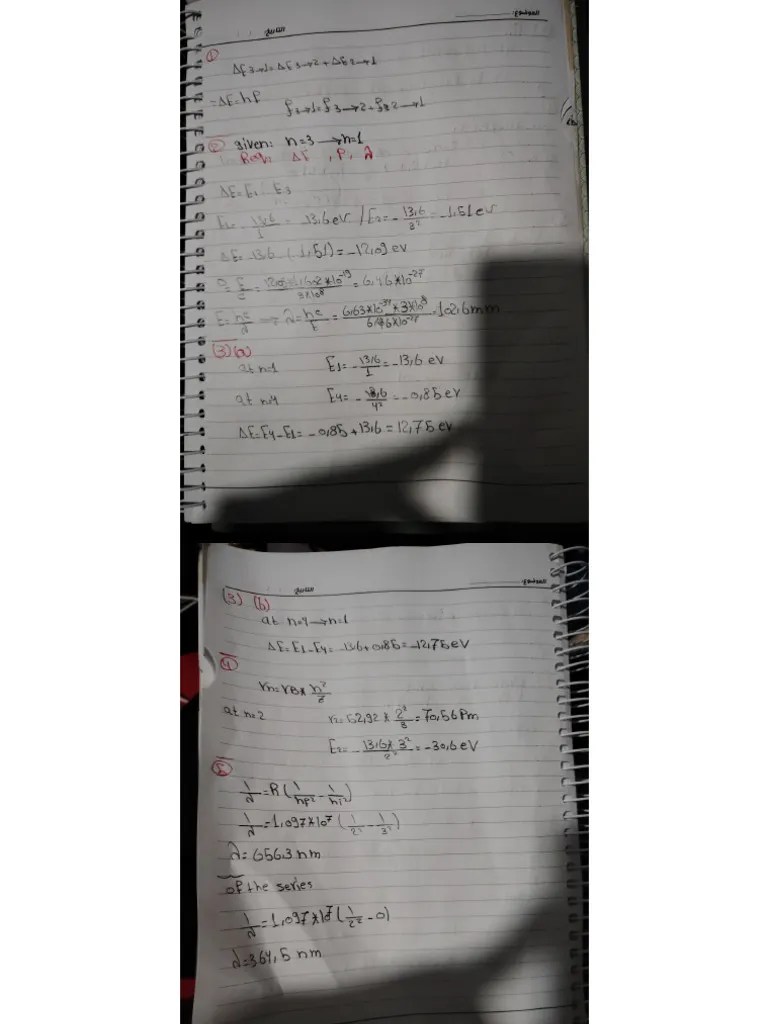 التاريخ الموضوع
①
ΔE3→1=ΔE3→2+ΔE2→1
=ΔE=hf f3→1=f3→2+f32→1
② given: n=3→n=1
Req: ΔE , P, λ
ΔE=E1 E3
E1=-13,6/1 = 13,6 eV / E3=-13,6/3²=-1,51 ev
ΔE= 13,6 (1,51)=-12,09 ev
P=E/c=12,09×1,602*10⁻¹⁹/3*10⁸=6,46*10⁻²⁷
E=hc/λ → λ=hc/E=6,63*10⁻³⁴*3*10⁸/6,46*10⁻²⁷=102,6mm
(3)(a)
at n=1 E1=-13,6/1=-13,6 eV
at n=4 E4=-13,6/4²=-0,85 eV
ΔE=E4-E1=-0,85+13,6=12,75 ev
التاريخ الموضوع
(3) (b)
at n=4→n=1
ΔE=E1-E4=-13,6+0,85=-12,75 eV
④
rn=rB*n²/z
at n=2 r2=52,92*2²/3=70,56 Pm
E2=-13,6*3²/2²=-30,6 eV
⑤
1/λ=R(1/nf²-1/ni²)
1/λ=1,097*10⁷(1/2²-1/3²)
λ=656,3 nm
of the series
1/λ=1,097*10⁷(1/2²-0)
λ=364,5 nm